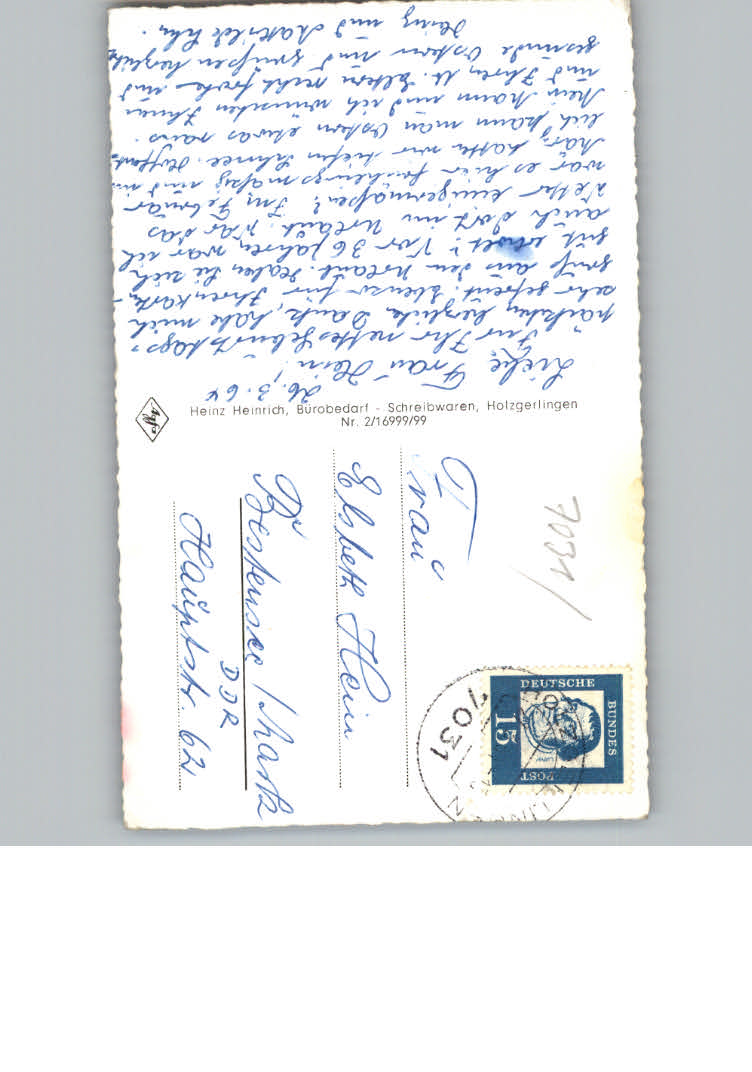 26.3.64
Liebe Frau Hein!
Für Ihr nettes Geburtstags-
päckchen herzlichen Dank, habe mich
sehr gefreut. Ebenso für Ihren Karten-
gruß aus dem Urlaub. Haben Sie sich
gut erholt? Vor 36 Jahren war ich
auch dort im Urlaub. War das
Wetter einigermaßen? Im Februar
war es hier frühlingsmäßig und im
März hatten wir tiefen Schnee. Hoffent-
lich kann man Ostern etwas raus.
Mein Mann und ich wünschen Ihnen
und Ihren lb. Eltern recht frohe und
gesunde Ostern und grüßen herzlichst
Heinz und Mathilde
Agfa
Heinz Heinrich, Bürobedarf - Schreibwaren, Holzgerlingen
Nr. 2/16999/99
7031/
Frau
Elsbeth Hein
Bestensee / Mark
DDR
Hauptstr 62
DEUTSCHE
BUNDES
POST
15
Luther
7031